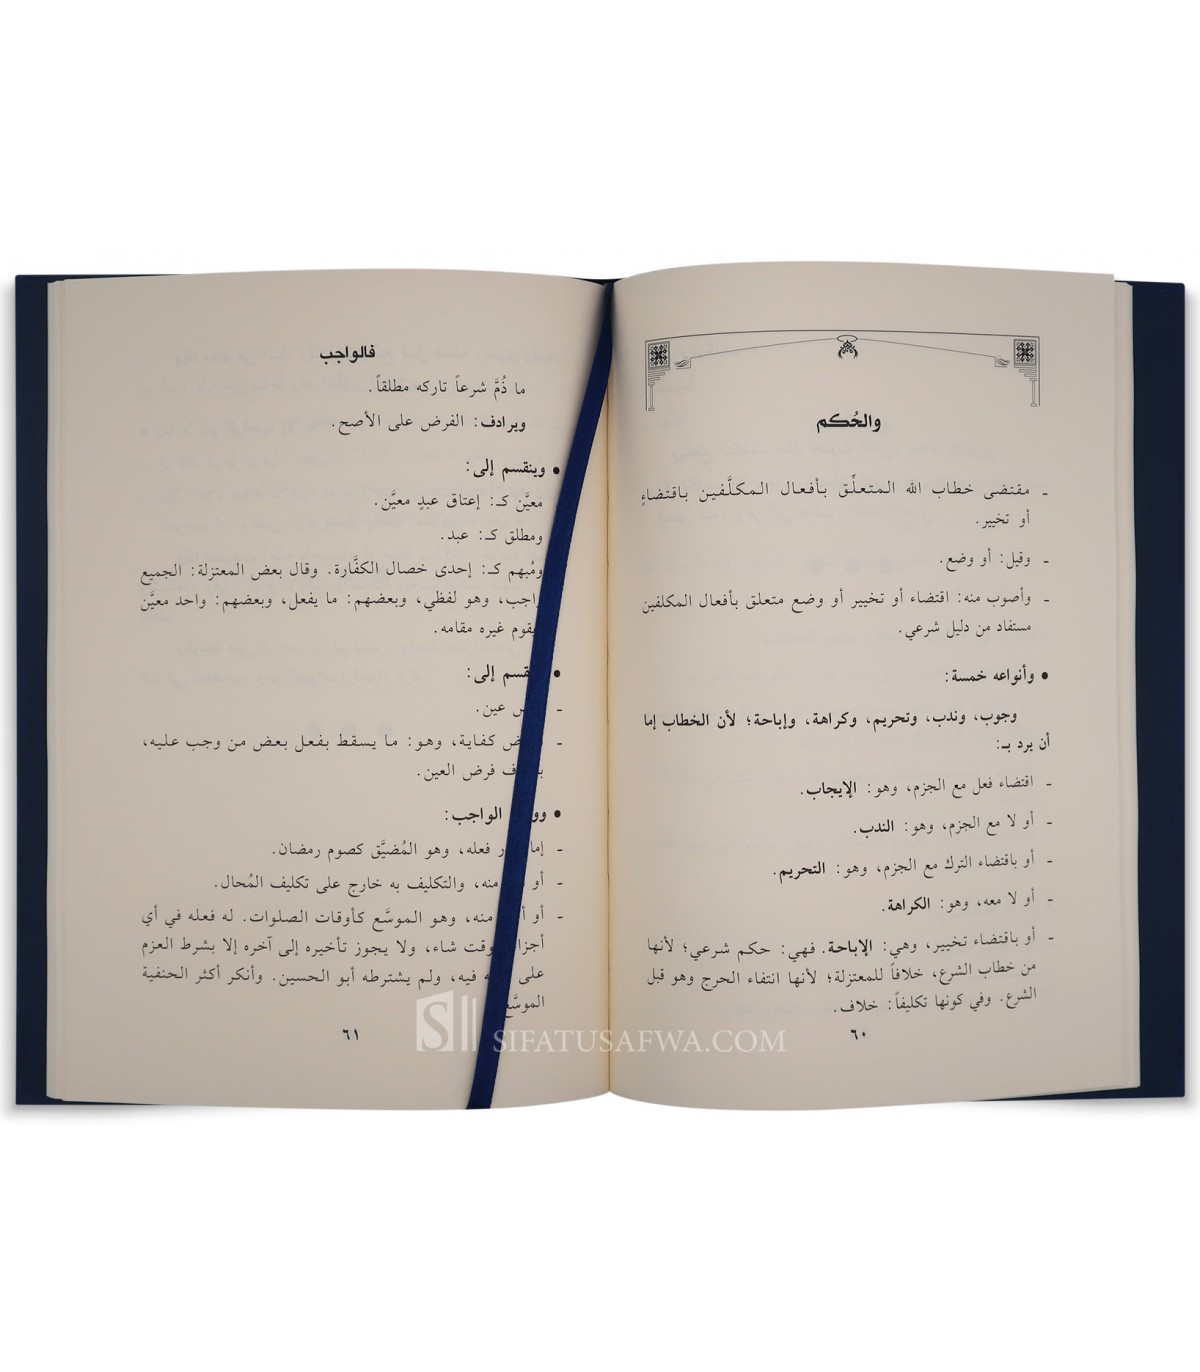 والحُكم
ـ مقتضى خطاب الله المتعلِّق بأفعال المكلَّفين باقتضاءٍ
أو تخيير.
ـ وقيل: أو وضع.
ـ وأصوب منه: اقتضاء أو تخيير أو وضع متعلق بأفعال المكلفين
مستفاد من دليل شرعي.
• وأنواعه خمسة:
وجوب، وندب، وتحريم، وكراهة، وإباحة؛ لأن الخطاب إما
أن يرد بـ:
ـ اقتضاء فعل مع الجزم، وهو: الإيجاب.
ـ أو لا مع الجزم، وهو: الندب.
ـ أو باقتضاء الترك مع الجزم، وهو: التحريم.
ـ أو لا معه، وهو: الكراهة.
ـ أو باقتضاء تخيير، وهي: الإباحة. فهي: حكم شرعي؛ لأنها
من خطاب الشرع، خلافاً للمعتزلة؛ لأنها انتفاء الحرج وهو قبل
الشرع. وفي كونها تكليفاً: خلاف.
٦٠
فالواجب
ما ذُمَّ شرعاً تاركه مطلقاً.
ويرادف: الفرض على الأصح.
• وينقسم إلى:
معيَّن كـ: إعتاق عبدٍ معيَّن.
ومطلق كـ: عبد.
ومُبهم كـ: إحدى خصال الكفَّارة. وقال بعض المعتزلة: الجميع
واجب، وهو لفظي، وبعضهم: ما يفعل، وبعضهم: واحد معيَّن
ويقوم غيره مقامه.
• إلى:
ـ عين.
ـ كفاية، وهو: ما يسقط بفعل بعض من وجب عليه،
فرض العين.
• الواجب:
ـ إما فعله، وهو المُضيَّق كصوم رمضان.
ـ أو منه، والتكليف به خارج على تكليف المُحال.
ـ أو منه، وهو الموسَّع كأوقات الصلوات. له فعله في أي
أجزاء وقت شاء، ولا يجوز تأخيره إلى آخره إلا بشرط العزم
على فيه، ولم يشترطه أبو الحسين. وأنكر أكثر الحنفية
الموسَّع
٦١
SIFATUSAFWA.COM